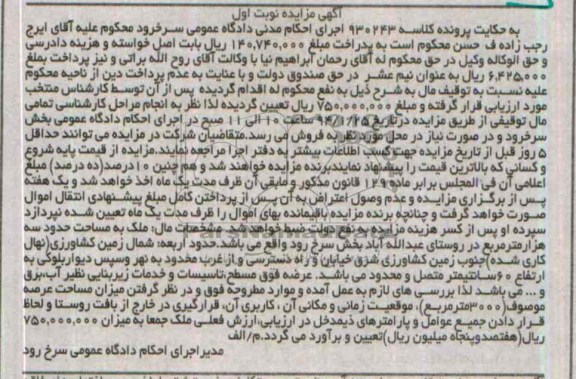 آگهی مزایده نوبت اول
به حکایت پرونده کلاسه ۹۳۰۲۴۳ اجرای احکام مدنی دادگاه عمومی سرخرود محکوم علیه آقای ایرج
رجب زاده ف حسن محکوم است به پرداخت مبلغ ۱۴۰,۷۴۰,۰۰۰ ریال بابت اصل خواسته و هزینه دادرسی
و حق الوکاله وکیل در حق محکوم له آقای رحمان ابراهیم نیا با وکالت آقای روح الله براتی و نیز پرداخت مبلغ
۶,۴۲۵,۰۰۰ ریال به عنوان نیم عشر در حق صندوق دولت و با عنایت به عدم پرداخت دین از ناحیه محکوم
علیه نسبت به توقیف مال به شرح ذیل به نفع محکوم له اقدام گردیده پس از آن توسط کارشناس منتخب
مورد ارزیابی قرار گرفته و مبلغ ۷۵۰,۰۰۰,۰۰۰ ریال تعیین گردیده لذا نظر به انجام مراحل کارشناسی تمامی
مال توقیفی از طریق مزایده درتاریخ ۹۴/۱/۲۵ ساعت ۱۰ الی ۱۱ صبح در اجرای احکام دادگاه عمومی بخش
سرخرود و در صورت نیاز در محل مورد نظر به فروش می رسد.متقاضیان شرکت در مزایده می توانند حداقل
۵ روز قبل از تاریخ مزایده جهت کسب اطلاعات بیشتر به دفتر اجرا مراجعه نمایند.مزایده از قیمت پایه شروع
و کسانی که بالاترین قیمت را پیشنهاد نمایندبرنده مزایده خواهند شد و هم چنین ۱۰درصد(ده درصد) مبلغ
اعلامی آن فی المجلس برابر ماده ۱۲۹ قانون مذکور و مابقی آن ظرف مدت یک ماه اخذ خواهد شد و یک هفته
پس از برگزاری مزایده و عدم وصول اعتراض به آن پس از پرداختن کامل مبلغ پیشنهادی انتقال اموال
صورت خواهد گرفت و چنانچه برنده مزایده باقیمانده بهای اموال را ظرف مدت یک ماه تعیین شده نپردازد
سپرده او پس از کسر هزینه مزایده به نفع دولت ضبط خواهد شد. مشخصات مال: ملک به مساحت حدود سه
هزارمترمربع در روستای عبدالله آباد بخش سرخ رود واقع می باشد.حدود اربعه: شمال زمین کشاورزی(نهال
کاری شده)جنوب زمین کشاورزی شرق خیابان و راه دسترسی و ازغرب محدود به نهر وسپس دیواربلوکی به
ارتفاع ۶۰سانتیمتر متصل و محدود می باشد. عرضه فوق مسطح،تاسیسات و خدمات زیربنایی نظیر آب،برق
و ... می باشد لذا بررسی های لازم به عمل آمده و موارد مطروحه فوق و در نظر گرفتن میزان مساحت عرصه
موصوف(۳۰۰۰مترمربع)، موقعیت زمانی و مکانی آن ، کاربری آن، قرارگیری در خارج از بافت روستا و لحاظ
قرار دادن جمیع عوامل و پارامترهای ذیمدخل در ارزیابی،ارزش فعلی ملک جمعا به میزان ۷۵۰,۰۰۰,۰۰۰
ریال(هفتصدوپنجاه میلیون ریال)تعیین و برآورد می گردد.م/الف
مدیراجرای احکام دادگاه عمومی سرخ رود